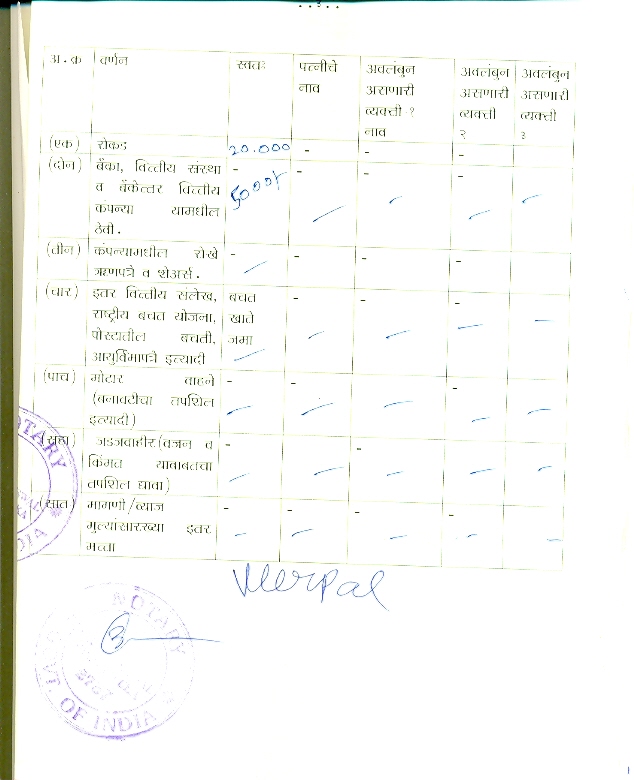 अ.क्र वर्णन स्वतः पत्नीचे नाव अवलंबुन असणारी व्यक्ती-१ नाव अवलंबुन असणारी व्यक्ती २ अवलंबुन असणारी व्यक्ती ३
(एक) रोकड 20.000 - - -
(दोन) बँका, वित्तीय संस्था - - - -
व बँकेत्तर वित्तीय 5000/
कंपन्या यामधील
ठेवी.
(तीन) कंपन्यामधील रोखे - - - -
ऋणपत्रे व शेअर्स.
(चार) इतर वित्तीय संलेख, बचत - - -
राष्ट्रीय बचत योजना, खाते
पोस्टातील बचती, जमा
आयुर्विमापत्रे इत्यादी
(पाच) मोटार वाहने - - - -
(बनावटीचा तपशिल
इत्यादी)
(सहा) जडजवाहीर(वजन व - -
किंमत याबाबतचा
तपशिल द्यावा)
(सात) मागणी/व्याज - - - -
मुल्यांसारख्या इतर
मत्ता
NOTARY
INDIA
NOTARY
GOVT. OF INDIA